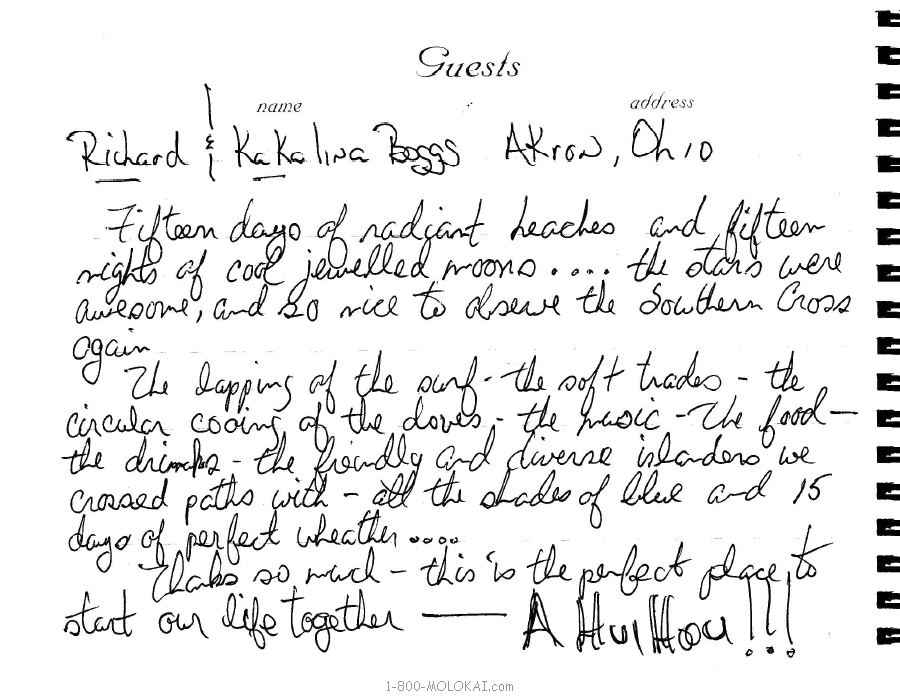 Guests
name address
Richard & KaKalina Boggs AKron, Ohio
Fifteen days of radiant beaches and fifteen
nights of cool jewelled moons .... the stars were
awesome, and so nice to observe the Southern Cross
again
The lapping of the surf - the soft trades - the
circular cooing of the doves - the music - The food -
the drinks - the friendly and diverse islanders we
crossed paths with - all the shades of blue and 15
days of perfect wheather ....
Thanks so much - this is the perfect place to
start our life together — A Hui Hou!!!
1-800-MOLOKAI.com